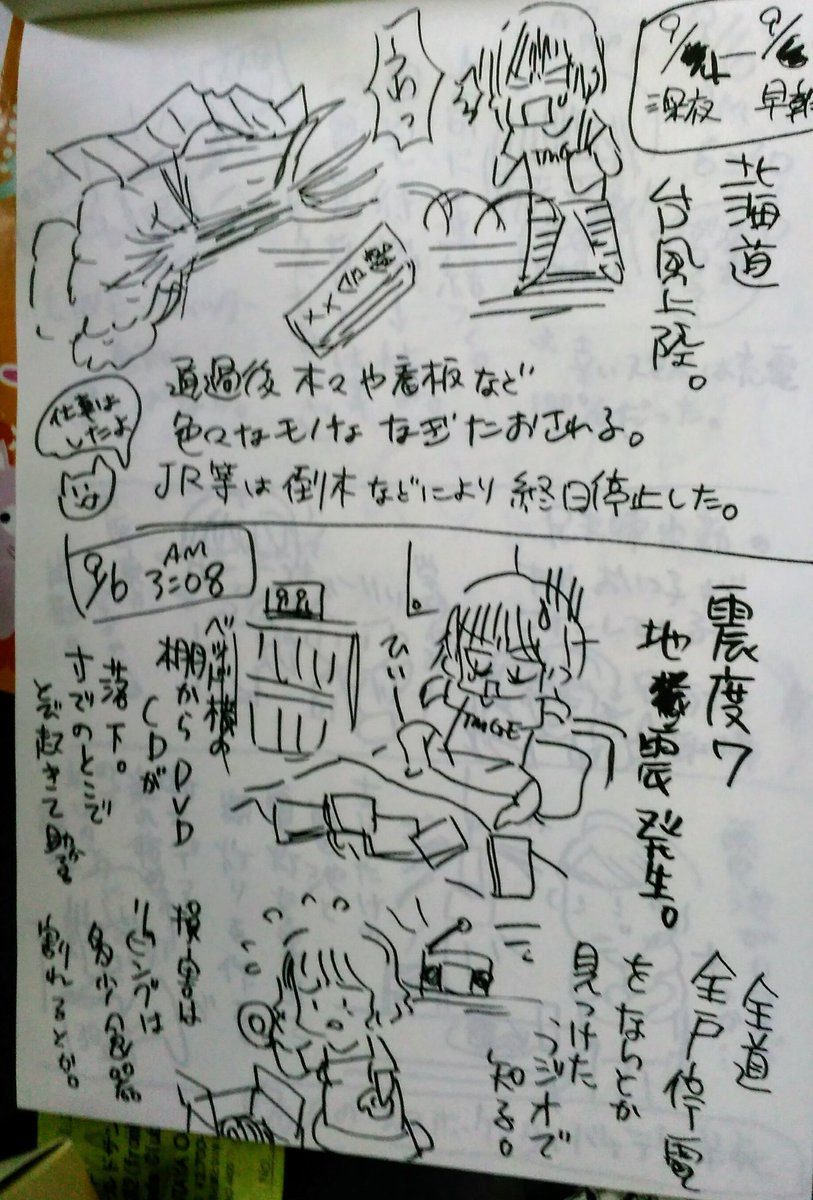 9/4ー9/5
深夜 早朝
北海道
台風上陸。
うわっ
TMGE
通過後木々や看板など
色々なモノがなぎたおされる。
JR等は倒木などにより終日停止した。
仕事は
したよ
9/6 AM 3:08
震度7
地震発生。
ひぃー
TMGE
棚からDVD
CDが
落下。
すでのとこで
とび起きて助かる
全道
全戸停電
をなんとか
見つけた
ラジオで
知る。
損害は
リビングは
多少食器
割れるとか。